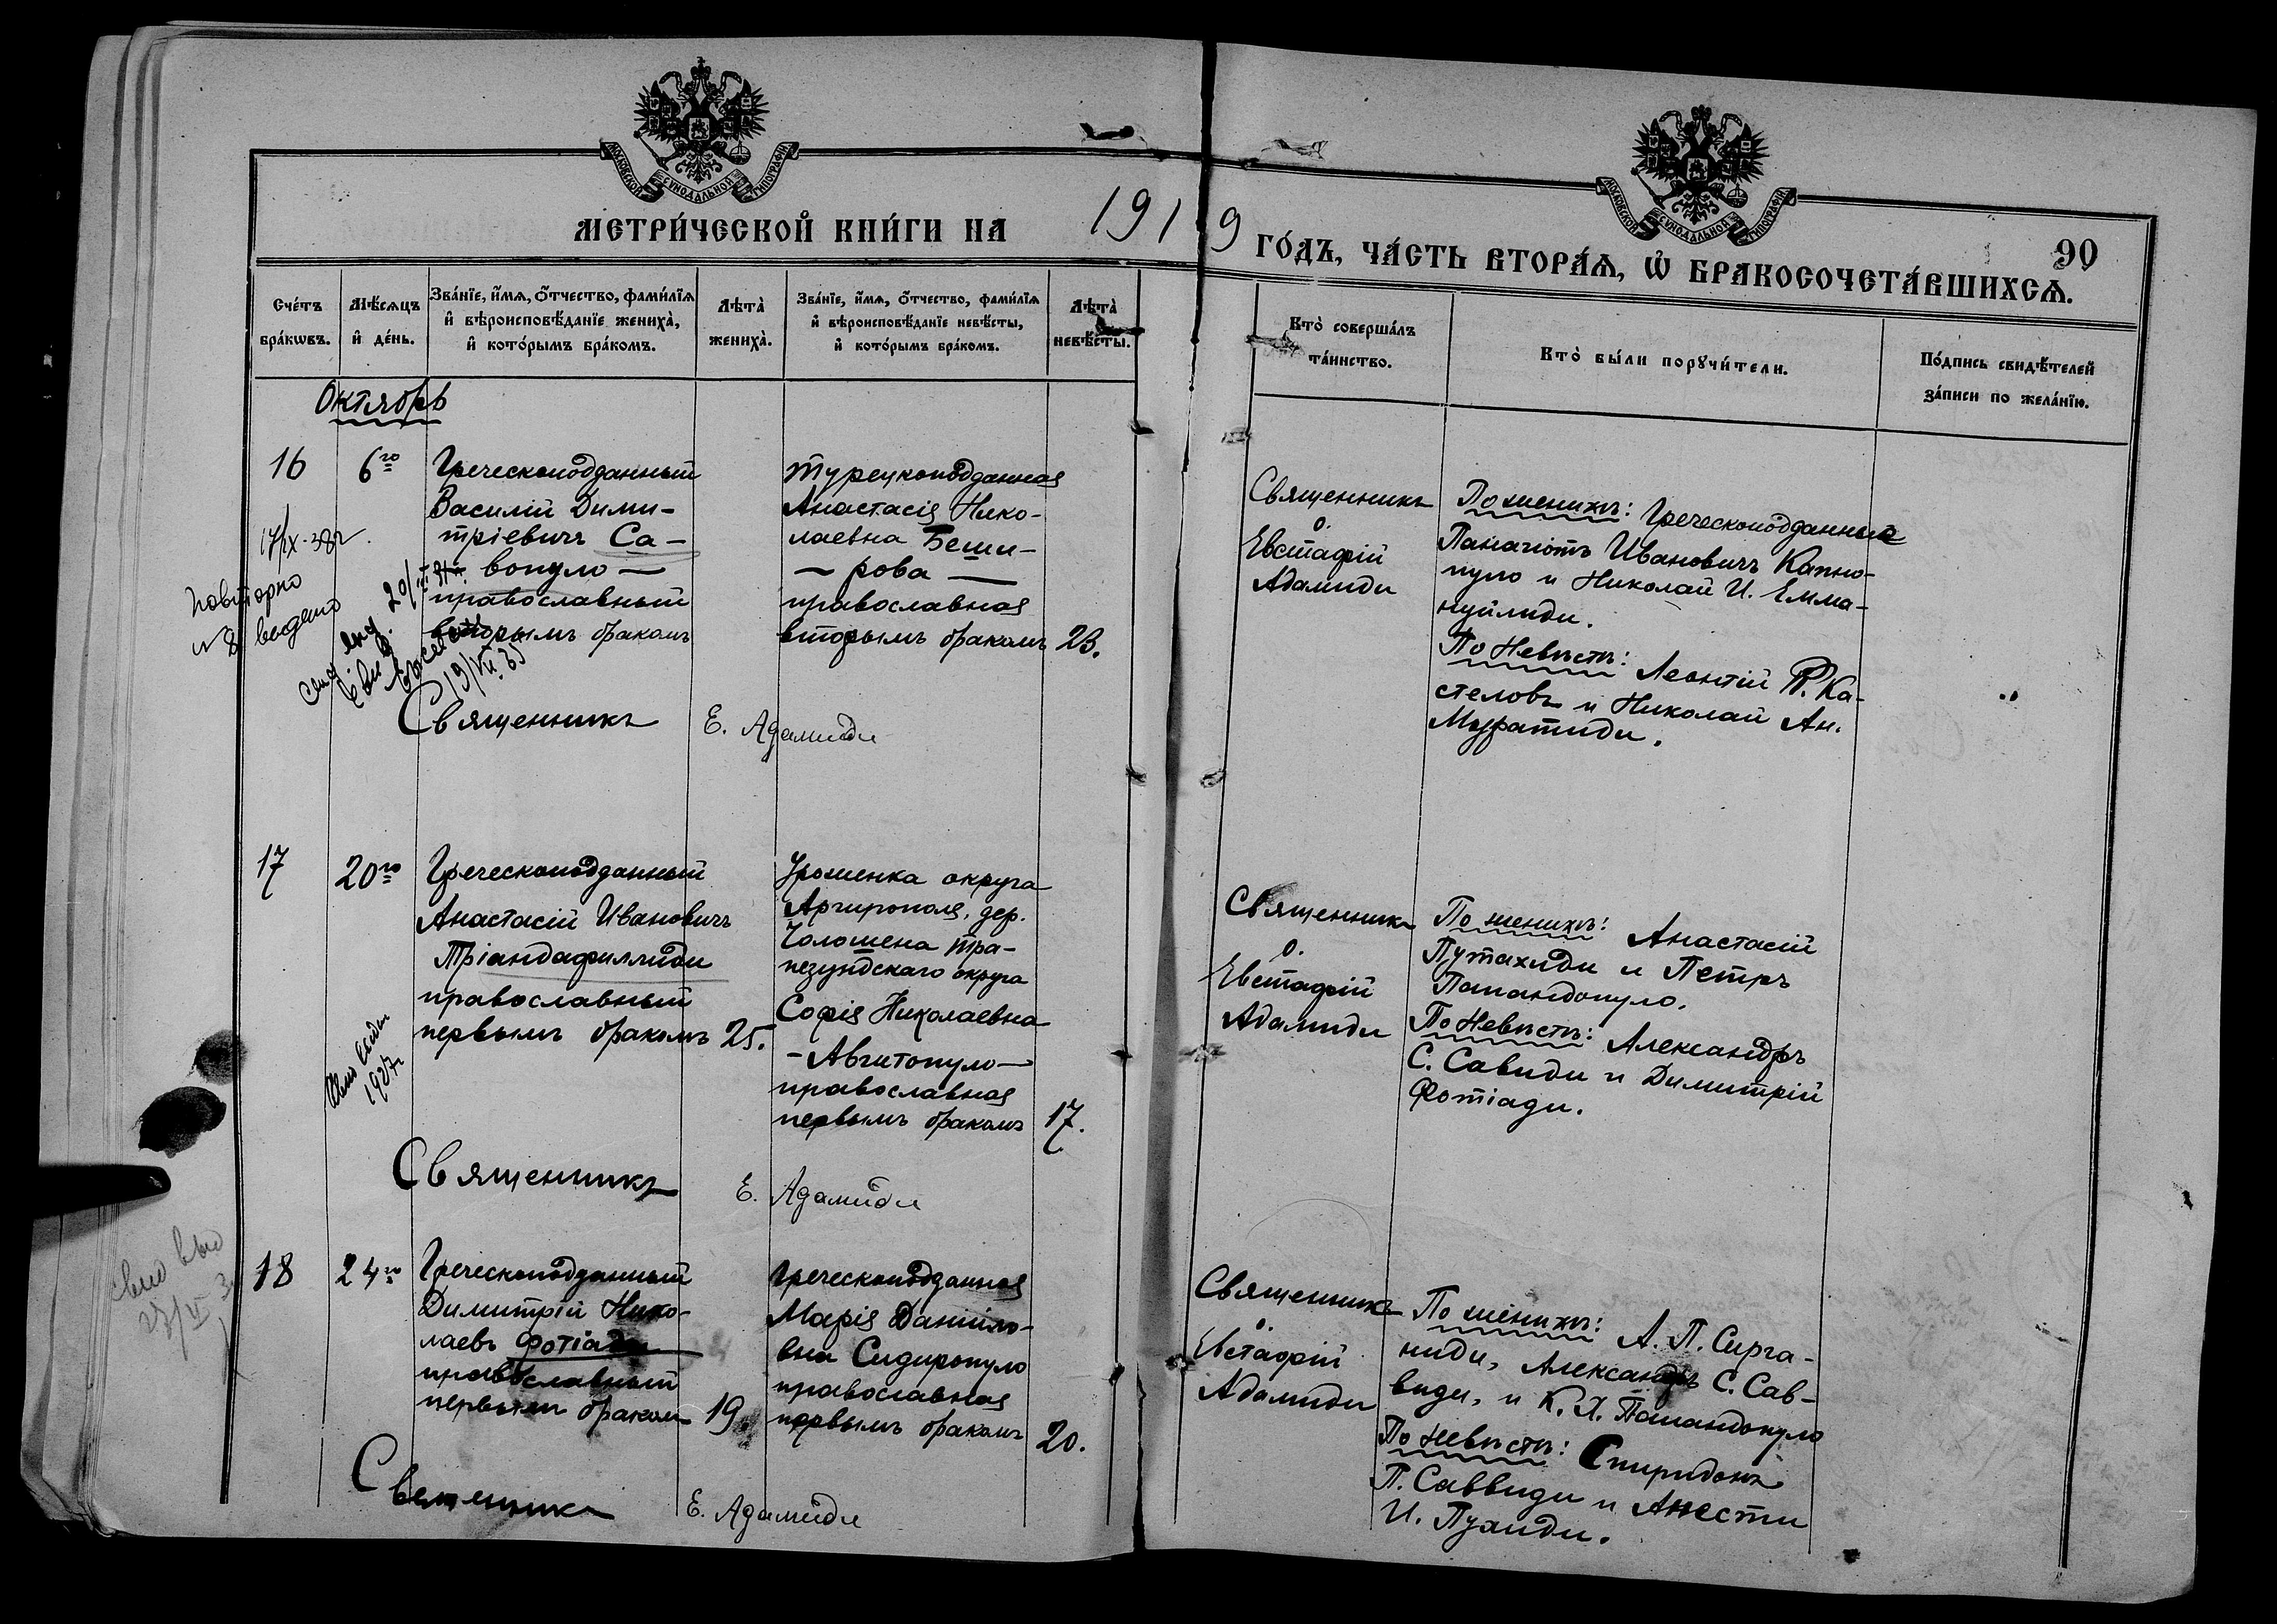 МОСКОВСКОЙ СУНОДАЛЬНОЙ ТИПОГРАФІИ
МЕТРИ́ЧЕСКОЙ КНИ́ГИ НА 1919 ГО́ДЪ, ЧА́СТЬ ВТОРА́Я, Ѽ БРАКОСОЧЕТА́ВШИХСЯ.
МОСКОВСКОЙ СУНОДАЛЬНОЙ ТИПОГРАФІИ
90
Сче́тъ
бра́кѡвъ.
Мѣ́сѧцъ
и҆ де́нь.
Зва́нїе, и҆́мѧ, ѻ҆́тчество, фами́лїѧ
и҆ вѣроисповѣ́данїе жениха̀,
и҆ кото́рымъ бра́комъ.
Лѣта̀
жениха̀.
Зва́нїе, и҆́мѧ, ѻ҆́тчество, фами́лїѧ
и҆ вѣроисповѣ́данїе невѣ́сты,
и҆ кото́рымъ бра́комъ.
Лѣта̀
невѣ́сты.
Кто̀ соверша́лъ
та́инство.
Кто̀ бы́ли порꙋчи́тели.
По́дпись свидѣ́телей
за́писи по жела́нїю.
Октябрь
16
6го
Греческоподданный
Василій Дими-
тріевичъ Са-
вопуло —
православный
вторымъ бракомъ
Турецкоподданная
Анастасія Нико-
лаевна Беши-
— рова —
православная
вторымъ бракомъ 23.
Священникъ
о.
Евстафій
Адамиди
По женихѣ: Греческоподданные
Панагіотъ Ивановичъ Капно-
пуло и Николай И. Емма-
нуилиди.
По Невѣстѣ: Леонтій П. Ка-
стеловъ и Николай Ан.
Муратиди.
17/IX-38г.
повторно
выдано
19/VII 35
Священникъ Е. Адамиди
17
20го
Греческоподданный
Анастасій Ивановичъ
Тріандафиллиди
православный
первымъ бракомъ 25.
Уроженка округа
Аргирополя, дер.
Чолошена Тра-
пезундскаго округа
Софія Николаевна
— Авгитопуло —
православная
первымъ бракомъ 17.
Священникъ
о.
Евстафій
Адамиди
По женихѣ: Анастасій
Путахиди и Петръ
Папандопуло.
По Невѣстѣ: Александръ
С. Савиди и Димитрій
Фотіади.
1927г
Священникъ Е. Адамиди
18
24го
Греческоподданный
Димитрій Нико-
лаевъ Фотіади
православный
первымъ бракомъ 19.
Греческоподданная
Марія Даніило-
вна Сидиропуло
православная
первымъ бракомъ 20.
Священникъ
о.
Евстафій
Адамиди
По женихѣ: А. П. Сирга-
ниди, Александръ С. Сав-
види, и К. Х. Папандопуло
По невѣстѣ: Спиридонъ
П. Саввиди и Анести
И. Пухиди.
Священникъ Е. Адамиди